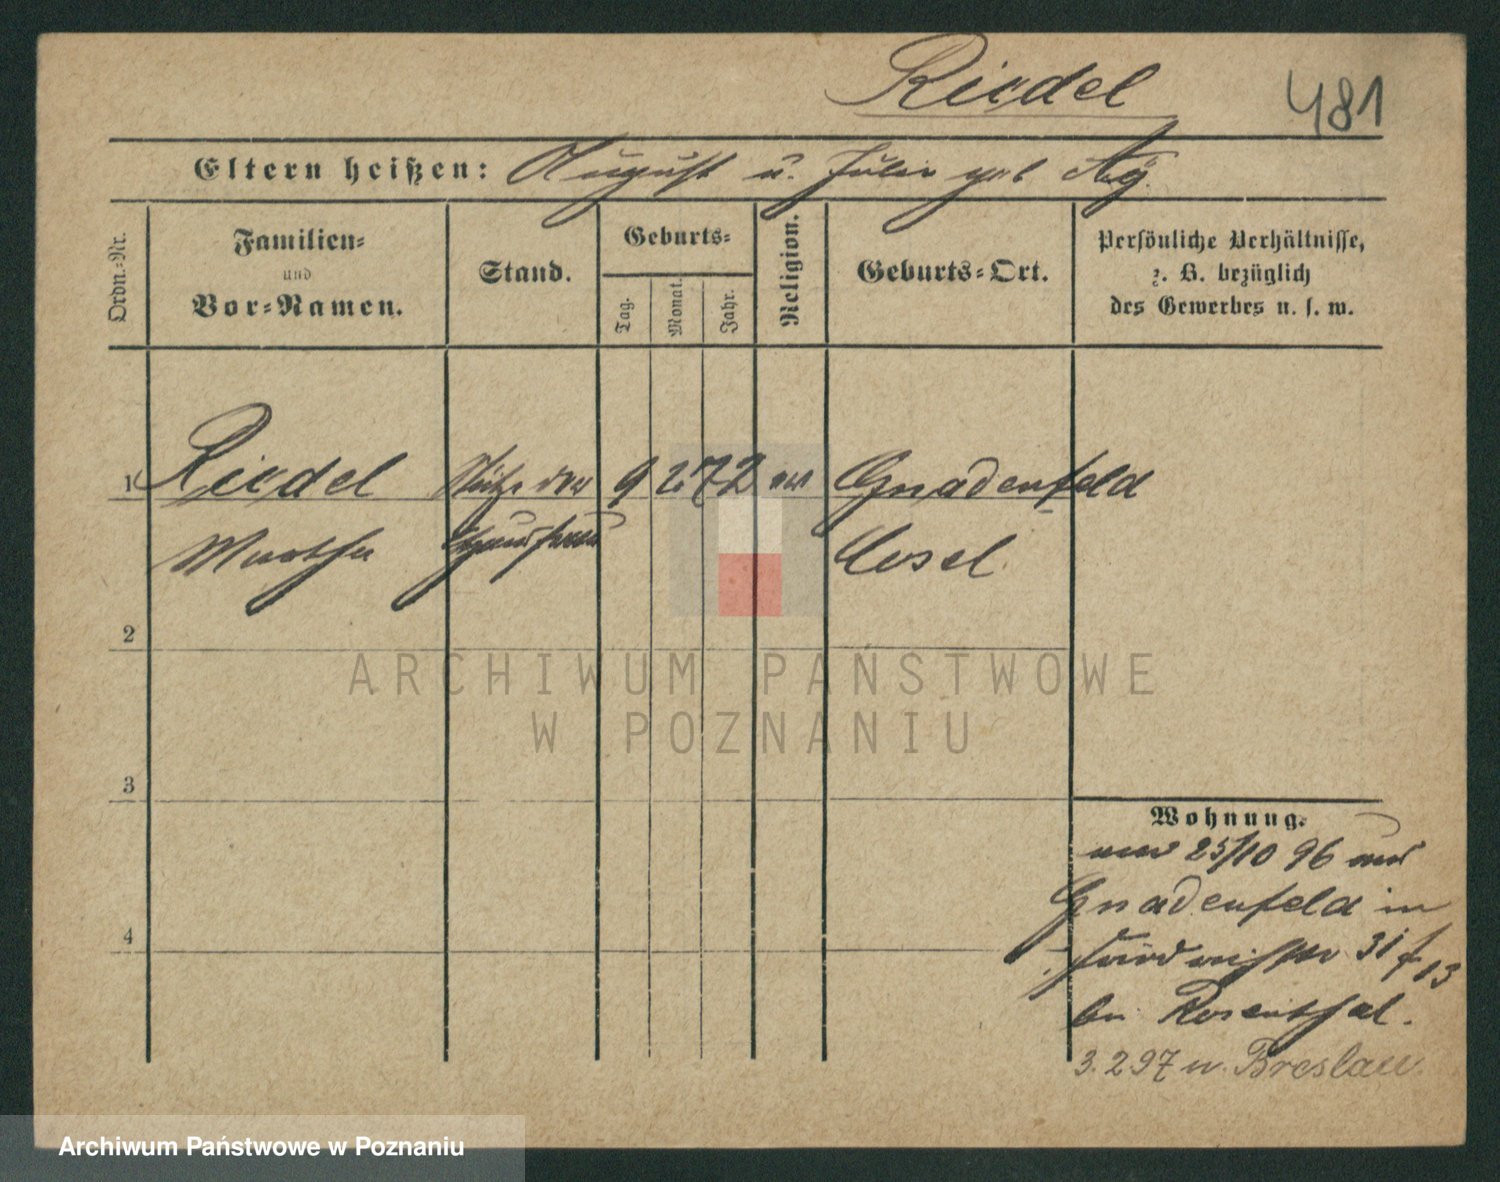 Riedel
481
Eltern heißen: August u. Julie geb
Ordn.-Nr.
Familien-
und
Vor-Namen.
Stand.
Geburts-
Tag.
Monat.
Jahr.
Religion.
Geburts-Ort.
Persönliche Verhältnisse,
z. B. bezüglich
des Gewerbes u. s. w.
1 Riedel Stütze der 9 2 72 ev Gnadenfeld
Martha Hausfrau Cosel
2
3
4
ARCHIWUM PAŃSTWOWE
W POZNANIU
Wohnung.
25/10 96 aus
Gnadenfeld in
31
13
bei Rosenthal.
3. 2 97 n. Breslau
Archiwum Państwowe w Poznaniu